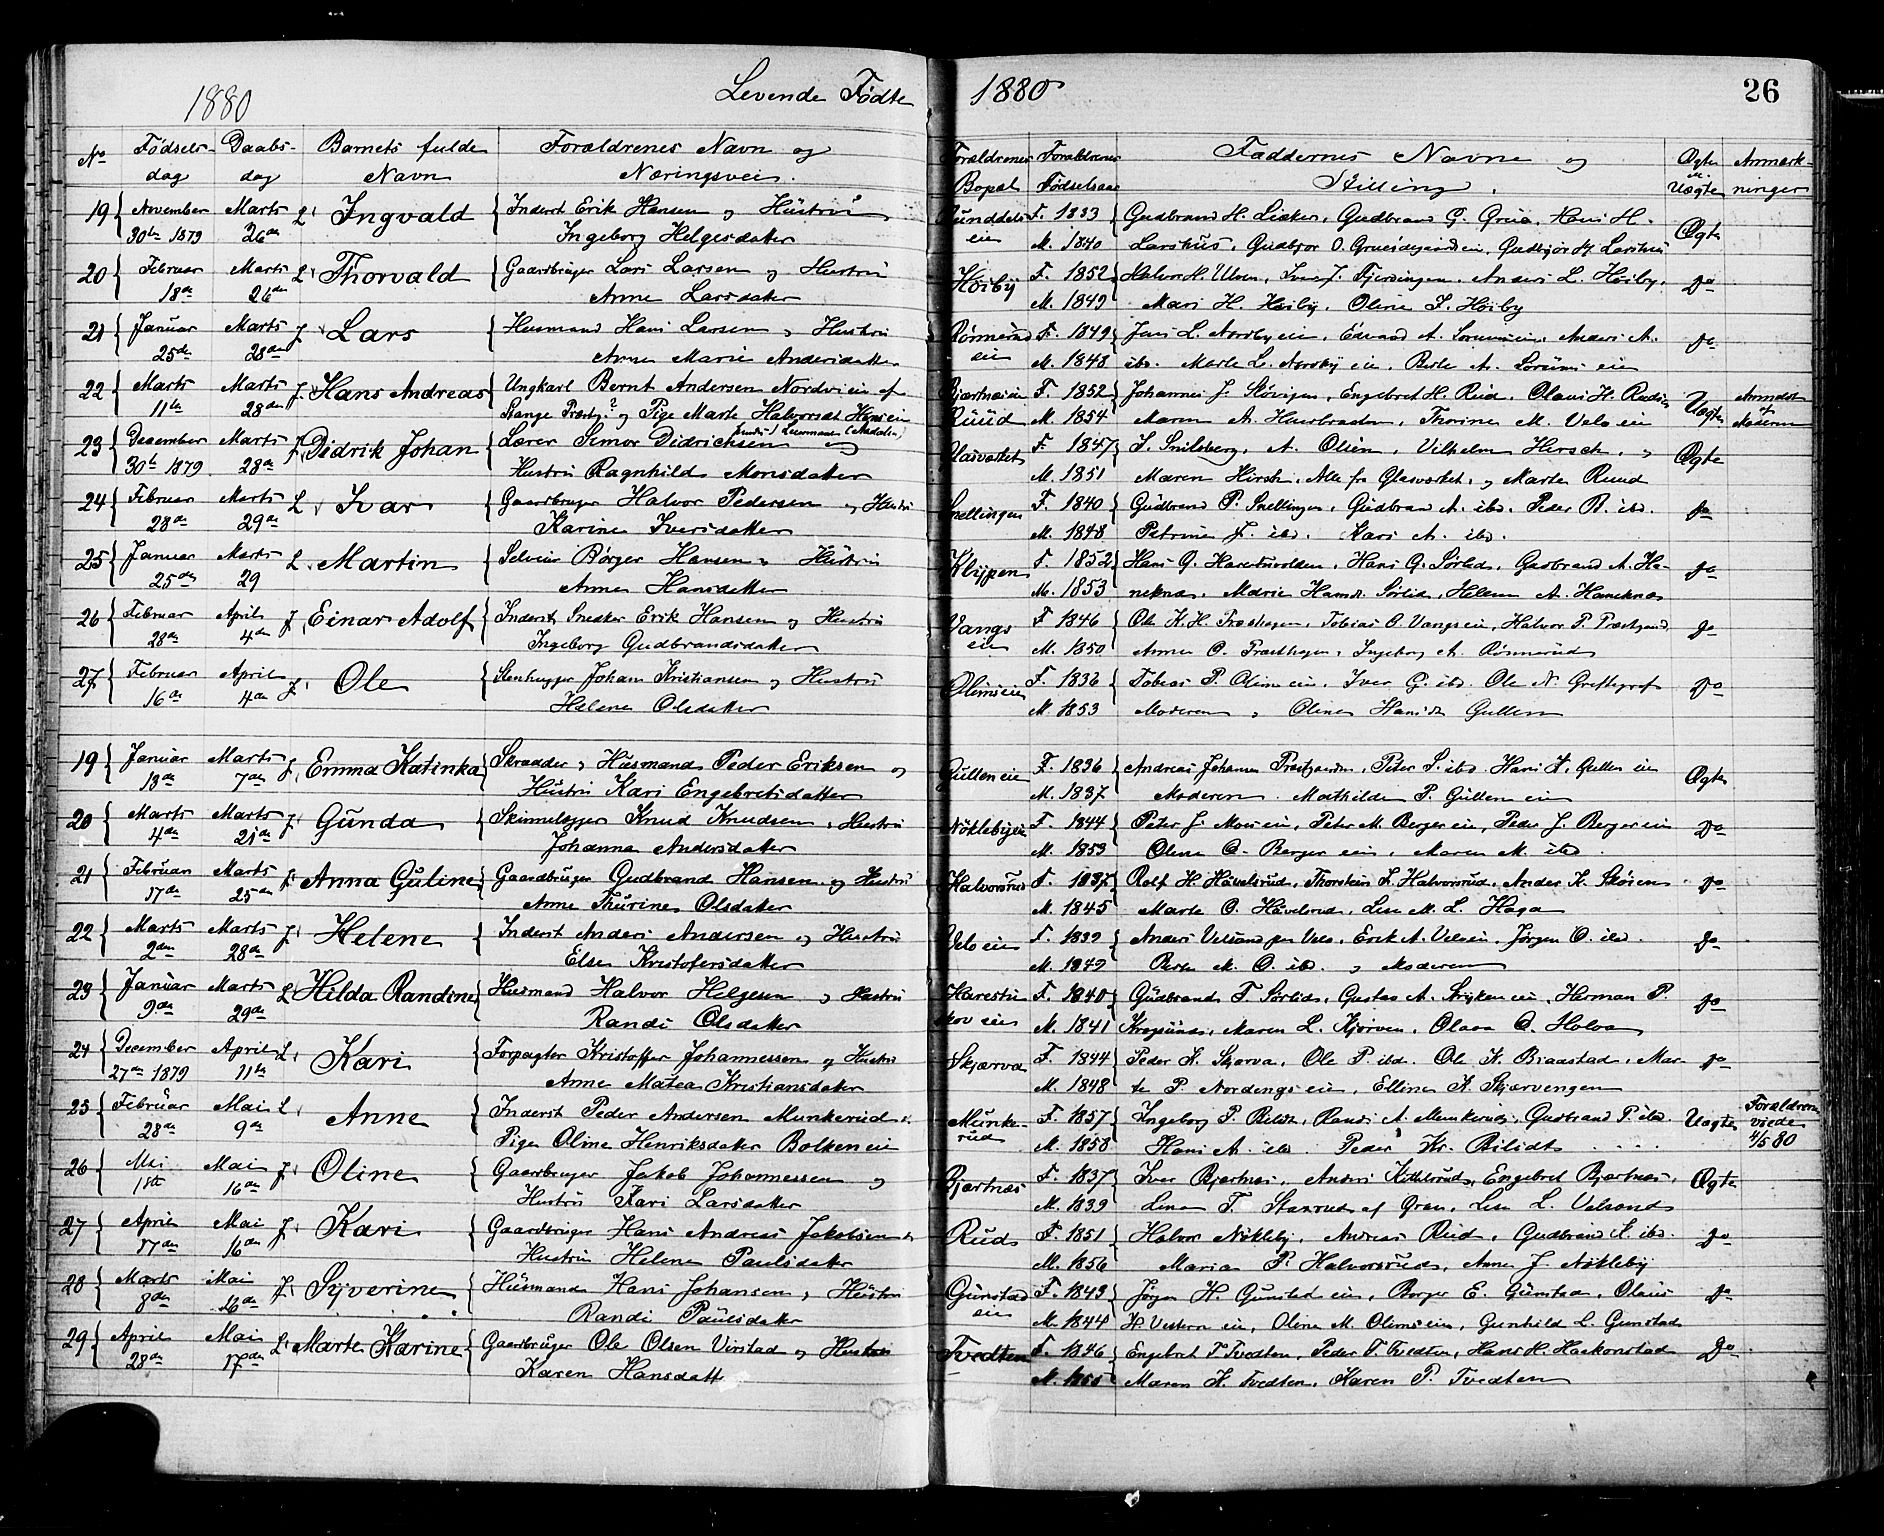 1880 Levende Fødte 1880 26
No Fødsels- Daabs- Barnets fulde Forældrenes Navn og Forældrenes Forældrenes Faddernes Navne og Ægte Anmærk-
dag dag Navn Næringsvei. Bopæl Fødselsaar Stilling. Uægte ninger
19 November Marts L. Ingvald Inderst Erik Hansen og Hustru F. 1833 Gudbrand H. Lisker, Gudbrand G. Grua, Hans H.
30te 1879 26de Ingeborg Helgesdatter eie M. 1840 Larshus, Gudbjør H. Larshus Ægte
20 Februar Marts L. Thorvald Gaardbruger Lars Larsen og Hustru Høiby F. 1852 Halvor H. Ulven, Iver J. Fjeldsingen, Anders L. Høiby, do
18de 26de Anne Larsdatter M. 1849 Mari H. Høiby, Oline I. Høiby
21 Januar Marts J. Lars Husmand Hans Larsen og Hustru Rønnerud F. 1849 Jens L. Nordbyeie, Edvard A. Sørumeie, Anders A. do
25de 28de Anne Marie Andersdatter eie M. 1848 ibd. Marte L. Nordby eie, Berte A. Sørum eie
22 Marts Marts J. Hans Andreas Ungkarl Bernt Andersen Nordvieie af Bjertneseie F. 1852 Johannes J. Støvigen, Engebret H. Rud, Olaus H. Rudeie Uægte Anmeldt
11te 28de Stange Præstgj? og Pige Marte Halvorsdt Høneeie Ruud M. 1854 Maren A. Husebraaten, Thorine M. Velo eie af Moderen
23 December Marts J. Didrik Johan Lærer Simon Didrichsen og F. 1847 S. Smilsberg, A. Olsen, Vilhelm Hirsch, og Ægte
30te 1879 28de Hustru Ragnhild Monsdatter M. 1851 Maren Hirsch, Alle fra Glasværket, og Marte Ruud
24 Februar Marts L. Ivar Gaardbruger Halvor Pedersen og Hustru Snellingen F. 1840 Gudbrand P. Snellingen, Gudbrand A. ibd. Peder R. ibd. do
28de 29de Karine Iversdatter M. 1848 Petrine J. ibd. Kari A. ibd.
25 Januar Marts L. Martin Selveier Børger Hansen og Hustru Klypen F. 1852 Hans G. Harestuvolden, Hans G. Sørlid, Gudbrand A. Ha- do
25de 29 Anne Hansdatter M. 1853 neknæ, Marie Hansdt. Sørlid, Helene A. Haneknæ
26 Februar April J. Einar Adolf Inderst Snedker Erik Hansen og Hustru Vangs F. 1846 Ole K. H. Præsthagen, Tobias O. Vangseie, Halvor P. Præstgaard do
28de 4de Ingeborg Gudbrandsdatter eie M. 1850 Anne O. Præsthagen, Ingeborg A. Rønnerud
27 Februar April J. Ole Stenhugger Johan Kristiansen og Hustru Olimseie F. 1836 Tobias P. Olimseie, Iver G. ibd. Ole N. Greftegref do
16de 4de Helene Olsdatter M. 1853 Moderen og Oline Hansdt. Gullen
19 Januar Marts J. Emma Katinka Skrædder og Husmand Peder Eriksen og Gulleneie F. 1836 Andreas Johansen Præstgaarden, Peter S. ibd. Hans K. Gullen eie Ægte
13de 7de Hustru Kari Engebretsdatter M. 1837 Moderen Mathilde P. Gullen eie
20 Marts Marts J. Gunda Skinnelægger Knud Knudsen og Hustru Nøklebyeie F. 1844 Peter J. Moseie, Peter M. Bergereie, Peder J. Bergereie do
4de 21de Johanna Andersdatter M. 1853 Oline O. Berger eie, Maren M. ibd.
21 Februar Marts J. Anna Guline Gaardbruger Gudbrand Hansen og Hustru Halvorsrud F. 1837 Rolf H. Hovelsrud, Thorstein L. Halvorsrud, Anders K. Skøien do
17de 25de Anne Thurine Olsdatter M. 1845 Marte O. Hovelsrud, Lise M. L. Haga
22 Marts Marts J. Helene Inderst Anders Andersen og Hustru Velo eie F. 1839 Anders Velsand per Velo, Erik A. Veloeie, Jørgen O. ibd. do
2den 28de Else Kristofersdatter M. 1849 Berte M. O. ibd. og Moderen
23 Januar Marts L. Hilda Randine Husmand Halvor Helgesen og Hustru Harestu F. 1840 Gudbrand T. Sørlid, Gustav A. Strykeneie, Herman P. do
9de 29de Randi Olsdatter skov eie M. 1841 Maren L. Kjørven, Olava O. Holva
24 December April L. Kari Forpagter Kristoffer Johannessen og Hustru Skjærva F. 1844 Peder K. Skjærva, Ole P. ibd. Ole K. Braastad, Mar- do
27de 1879 11te Anne Matea Kristiansdatter M. 1848 te P. Nordengs eie, Elline K. Skjærvengen
25 Februar Mai L. Anne Inderst Peder Andersen Munkerud & Munke- F. 1857 Ingeborg P. Bildt, Randi A. Munkerud, Gudbrand P. ibd. Uægte Forældrene
28de 9de Pige Oline Henriksdatter Bolkeneie rud M. 1858 Hans A. ibd. Peder Kr. Bilidt viede 4/5 80
26 Mai Mai J. Oline Gaardbruger Jakob Johannessen og Bjertnæs F. 1837 Iver Bjertnæs, Anders Kittilsrud, Engebret Bjertnæs, Ægte
1ste 16de Hustru Kari Larsdatter M. 1839 Lina T. Staxrud af Gran, Lise L. Velsand
27 April Mai J. Kari Gaardbruger Hans Andreas Jakobsen & Rud F. 1851 Halvor Nøkleby, Andreas Rud, Gudbrand K. ibd. do
17de 16de Hustru Helene Paulsdatter M. 1856 Maria P. Halvorsrud, Anne J. Nøkleby
28 Marts Mai J. Syverine Husmand Hans Johansen og Hustru Gunstad F. 1843 Jørgen H. Gunstad eie, Borger E. Gunstad, Olaus do
8de 16de Randi Paulsdatter eie M. 1844 H. Vestern eie, Oline M. Olimseie, Gunhild L. Gunstad
29 April Mai L. Marte Karine Gaardbruger Ole Olsen Virstad og Hustru Tvedten F. 1846 Engebret T. Tvedten, Peder T. Tvedten, Hans H. Haakonstad do
28de 17de Karen Hansdatt M. 1855 Maren K. Tvedten, Karen P. Tvedten